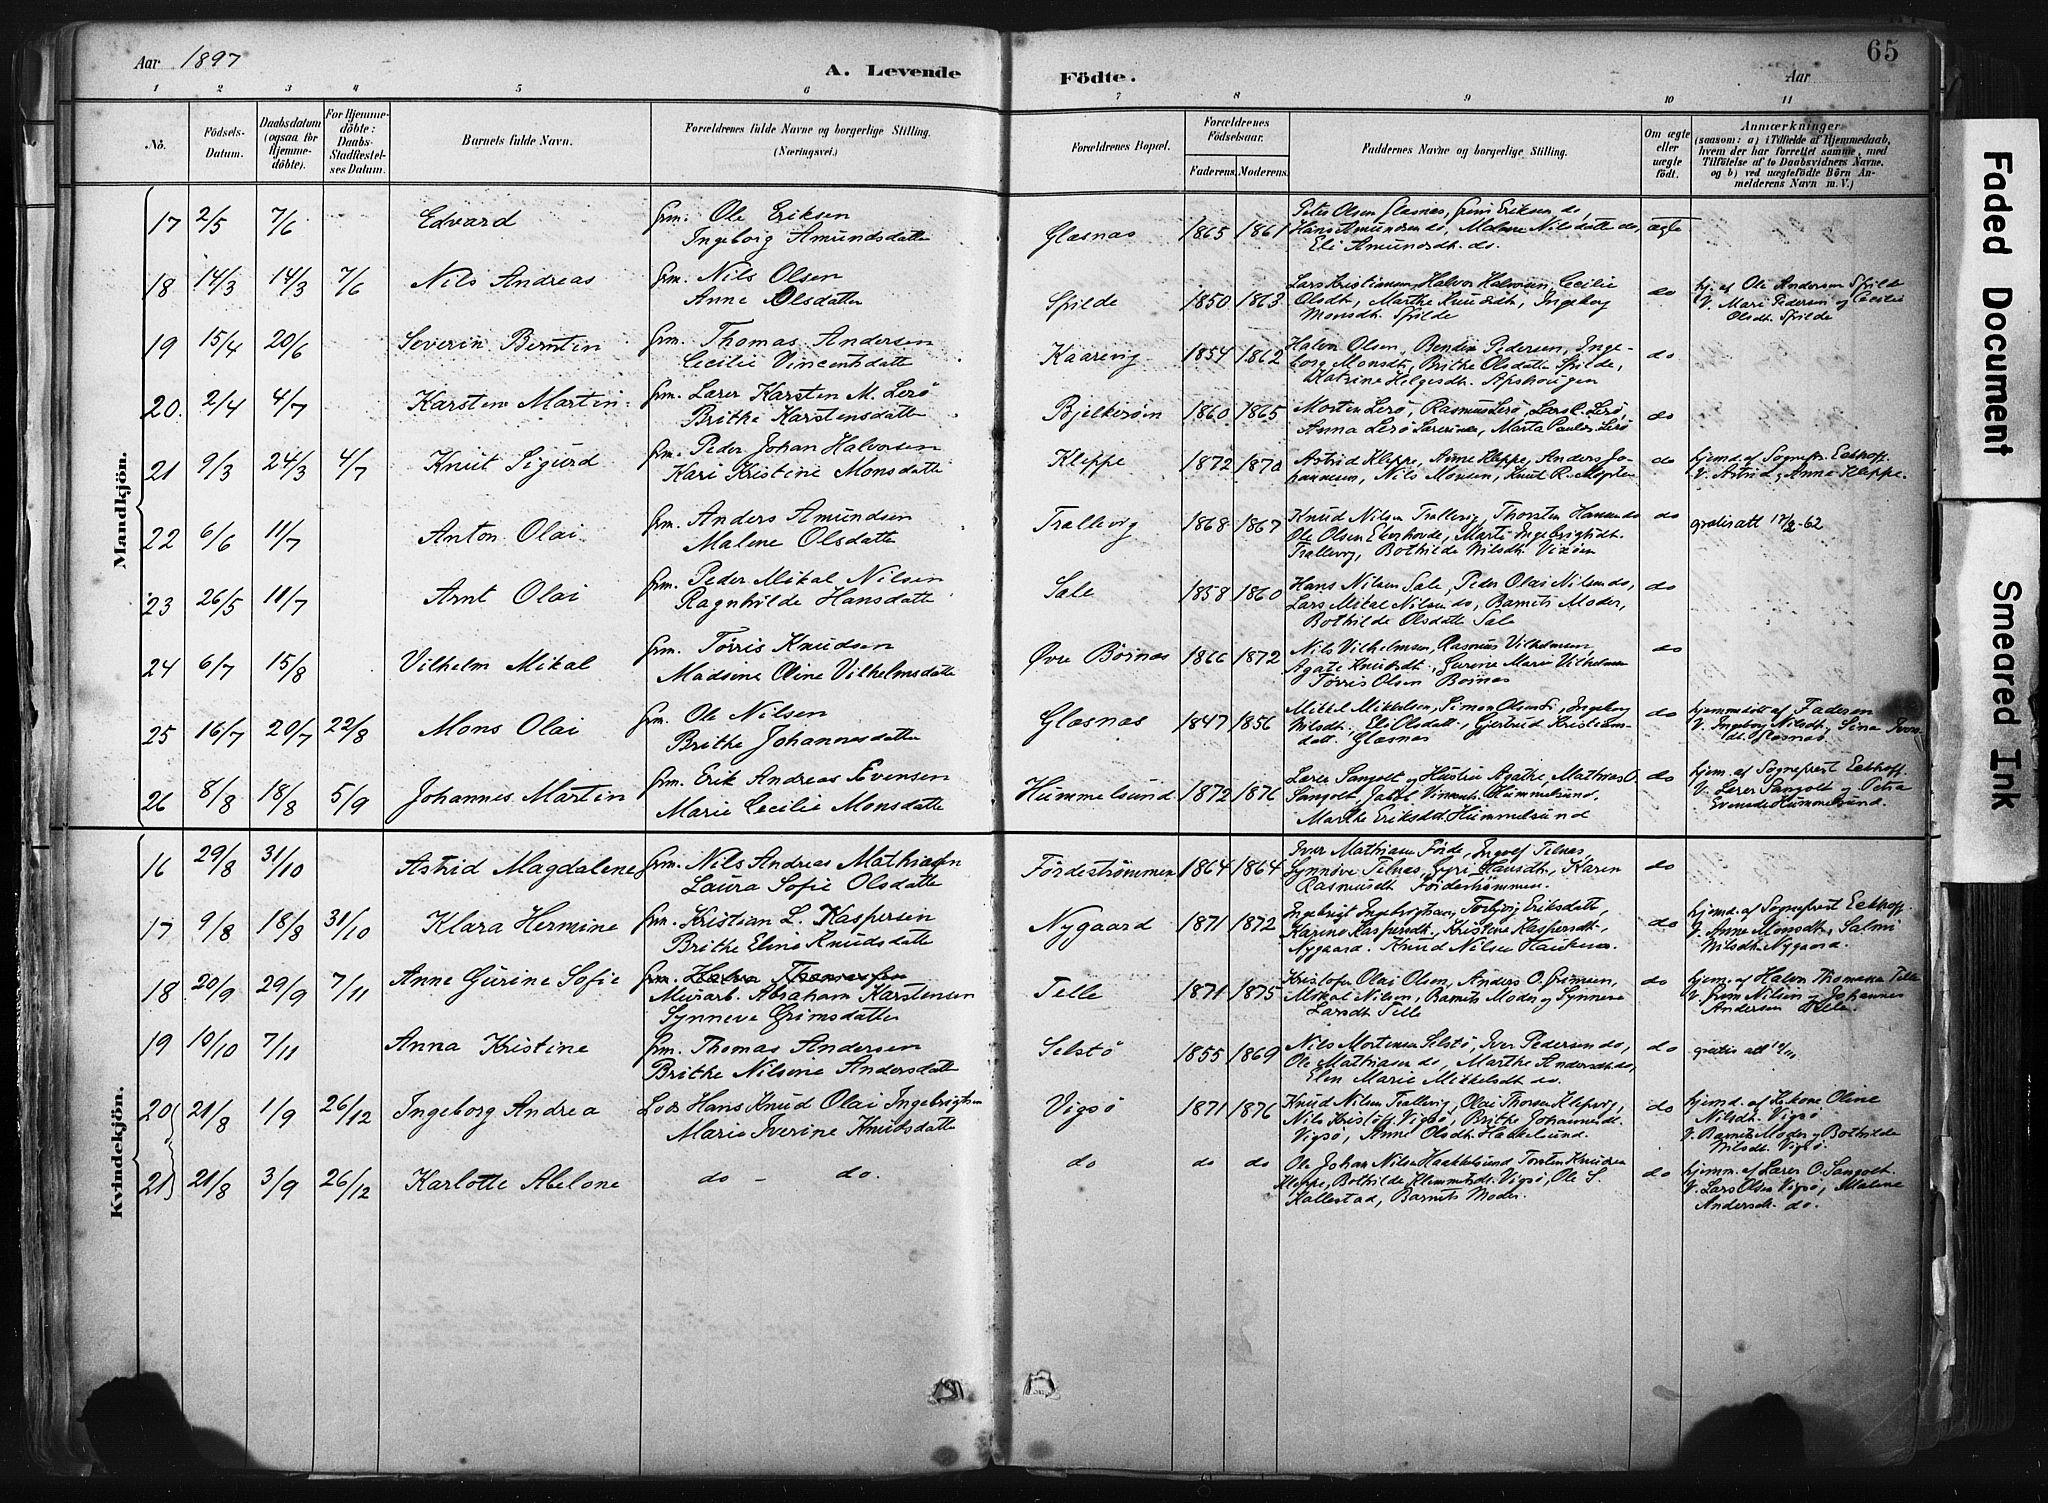 Aar 1897
A. Levende
Födte.
Aar
65
1 2 3 4 5 6 7 8 9 10 11
No.
Födsels-
Datum.
Daabsdatum
(ogsaa for
Hjemme-
döbte).
For Hjemme-
döbte:
Daabs-
Stadfæstel-
ses Datum.
Barnets fulde Navn.
Forældrenes fulde Navne og borgerlige Stilling.
(Næringsvei.)
Forældrenes Bopæl.
Forældrenes
Födselsaar.
Faderens. Moderens.
Faddernes Navne og borgerlige Stilling.
Om ægte
eller
uægte
födt.
Anmærkninger
(saasom: a) i Tilfælde af Hjemmedaab,
hvem der har forrettet samme, med
Tilföielse af to Daabsvidners Navne,
og b) ved uægtefödte Börn An-
melderens Navn m. V.)
Mandkjön.
17 2/5 7/6 Edvard
Grm. Ole Eriksen
Ingeborg Amundsdatter
Glæsnæs 1865 1861
Peter Olsen Glæsnæs, Grim Eriksen do,
Hans Amundsen do, Malene Nilsdatter do,
Eli Amundsdt. do.
ægte
18 14/3 14/3 7/6 Nils Andreas
Grm. Nils Olsen
Anne Olsdatter
Spilde 1850 1863
Lars Kristiansen, Halvor Halvorsen, Cecilie
Olsdt, Marthe Knudsdt, Ingeborg
Monsdt. Spilde
do
hj. af Ole Andersen Spilde
V. Mari Pedersen og Cecilie
Olsdt. Spilde
19 15/4 20/6 Severin Berntin
Grm. Thomas Andersen
Cecilie Vincentsdatter
Kaarevig 1854 1862
Halvor Olsen, Bendix Pedersen, Inge-
borg Monsdt, Brithe Olsdatter Spilde,
Katrine Helgesdt.
do
20. 2/4 4/7 Karsten Martin
Grm. Lærer Karsten M. Lerö
Brithe Karstensdatter
Bjelkerøn 1860 1865
Morten Lerö, Rasmus Lerö, Lars R. Lerö,
Anna Lerö Lærerinde, Marta Paulsdt. Lerö
do
21 9/3 24/3 4/7 Knut Sigurd
Grm. Peder Johan Halvorsen
Kari Kristine Monsdatter
Kleppe 1872 1870
Astrid Kleppe, Anne Kleppe, Anders Jo-
hannesen, Nils Monsen, Knut R.
do
hjemd. af Sognepr. Eckhoff
V. Astrid og Anna Kleppe.
22 6/6 11/7 Anton Olai
Grm. Anders Amundsen
Malene Olsdatter
Trællevig 1868 1867
Knud Nilsen Trællevig, Thorsten Hansen do
Ole Olsen Ekerhovde, Marte Ingebrigtsdt.
Trællevig, Bothilde Nilsdt. Vixøen
do
gratis att 17/2-62
23 26/5 11/7 Arnt Olai
Grm. Peder Mikal Nilsen
Ragnhilde Hansdatter
Sale 1858 1860
Hans Nilsen Sale, Peder Olai Nilsen do,
Lars Mikal Nilsen do, Barnets Moder,
Bothilde Olsdatter Sale
do
24 6/7 15/8 Vilhelm Mikal
Grm. Tørris Knudsen
Madsine Oline Vilhelmsdatter
Øvre Børnæs 1866 1872
Nils Vilhelmsen, Rasmus Vilhelmsen,
Agate Knudsdt., Gurine Marie Vilhelmsen
Tørris Olsen Børnæs
do
25 16/7 20/7 22/8 Mons Olai
Grm. Ole Nilsen
Brithe Johannesdatter
Glæsnæs 1847 1856
Mikkel Mikkelsen, Simon Olsen, Ingeborg
Nilsdt., Eli Olsdatt., Gjertrud Kristians-
datt. Glæsnæs
do
hjemmedöbt af Faderen
V. Ingeborg Nilsdt, Sina Ivers-
dt. Glæsnæs
26 8/8 18/8 5/9 Johannes Martin
Grm. Erik Andreas Evensen
Marie Cecilie Monsdatter
Hummelsund 1872 1876
Lærer Sangolt og Hustru Agathe, Mathias O.
Sangolt, Jakob Vincents. Hummelsund,
Marthe Eriksdt. Hummelsund
do
hjem. af Sogneprest Eckhoff
V. Lærer Sangolt og Petra
Evensdt Hummelsund.
Kvindekjön.
16 29/8 31/10 Astrid Magdalene
Grm. Nils Andreas Mathiasen
Laura Sofie Olsdatter
Fördeströmmen 1864 1864
Iver Mathiasen Förde, Ingolf Telnæs
Synnöve Telnæs, Gyri Hansdt., Karen
Rasmusdt Fördeströmmen.
do
17 9/8 18/8 31/10 Klara Hermine
Grm. Kristian L. Kaspersen
Brithe Eline Knudsdatter
Nygaard 1871 1872
Ingebrigt Ingebrigtsen, Torbjörg Eriksdatter,
Karine Kaspersdt, Kristine Kaspersdt,
Nygaard. Knud Nilsen
do
hjemd. af Sogneprest Eckhoff.
V. Anne Monsdt, Salmi
Nilsdt. Nygaard.
18 20/9 29/9 7/11 Anne Gurine Sofie
Grm. Halvor Thomassen
Murarb. Abraham Karstensen
Synneve Grimsdatter
Telle 1871 1875
Kristofer Olai Olsen, Anders O. Grimsen,
Mikal Nilsen, Barnets Moder og Synneve
Larsdt Telle
do
hjem. af Halvor Thomassen Telle
V. Grim Nilsen og Johannes
Andersen Telle.
19 10/10 7/11 Anna Kristine
Grm. Thomas Andersen
Brithe Nilsine Andersdatter
Selstö 1855 1869
Nils Mortensen Selstö, Iver Pedersen do,
Ole Mathiasen do, Marthe Andersdt. do,
Elen Marie Mikkelsdt do.
do
gratis att
20 21/8 1/9 26/12 Ingeborg Andrea
Lods Hans Knud Olai Ingebrigtsen
Marie Iverine Knudsdatter
Vigsö 1871 1876
Knud Nilsen Trællevig, Olai Thorsen Klepvig,
Nils Kristoff. Vigsö, Brithe Johannesdt.
Vigsö, Anne Olsdt. Hakkelsund.
do
hjemd. af Jskone Oline
Nilsdt. Vigsö
V. Barnets Moder og Bothilde
Nilsdt. Vigsö
21 21/8 3/9 26/12 Karlotte Abelone
do - do.
do do do
Ole Johan Nilsen Haakkelsund Torsten Knudsen
Kleppe, Bothilde Klemmetsdt. Vigsö, Ole S.
Kallestad, Barnets Moder.
do
hjemm. af Lærer O. Sangolt.
V. Lars Olsen Vigsö, Malene
Andersdt. do.
Faded Document
Smeared Ink